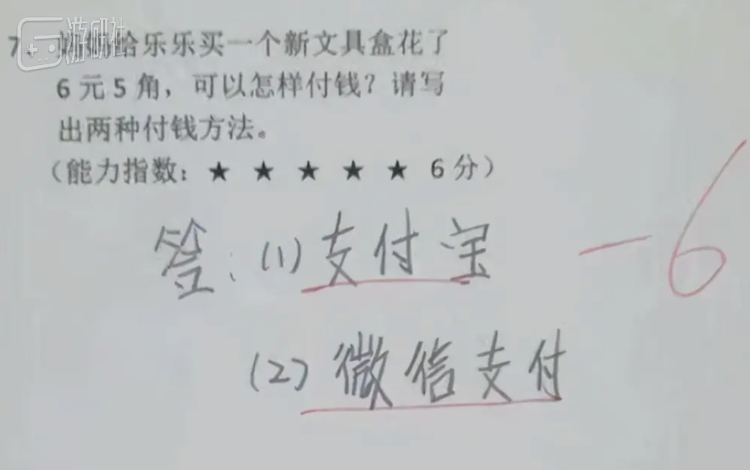 游研社
7、奶奶给乐乐买一个新文具盒花了
6元5角，可以怎样付钱？请写
出两种付钱方法。
（能力指数：★ ★ ★ ★ ★ 6分）
答：(1)支付宝
-6
(2)微信支付